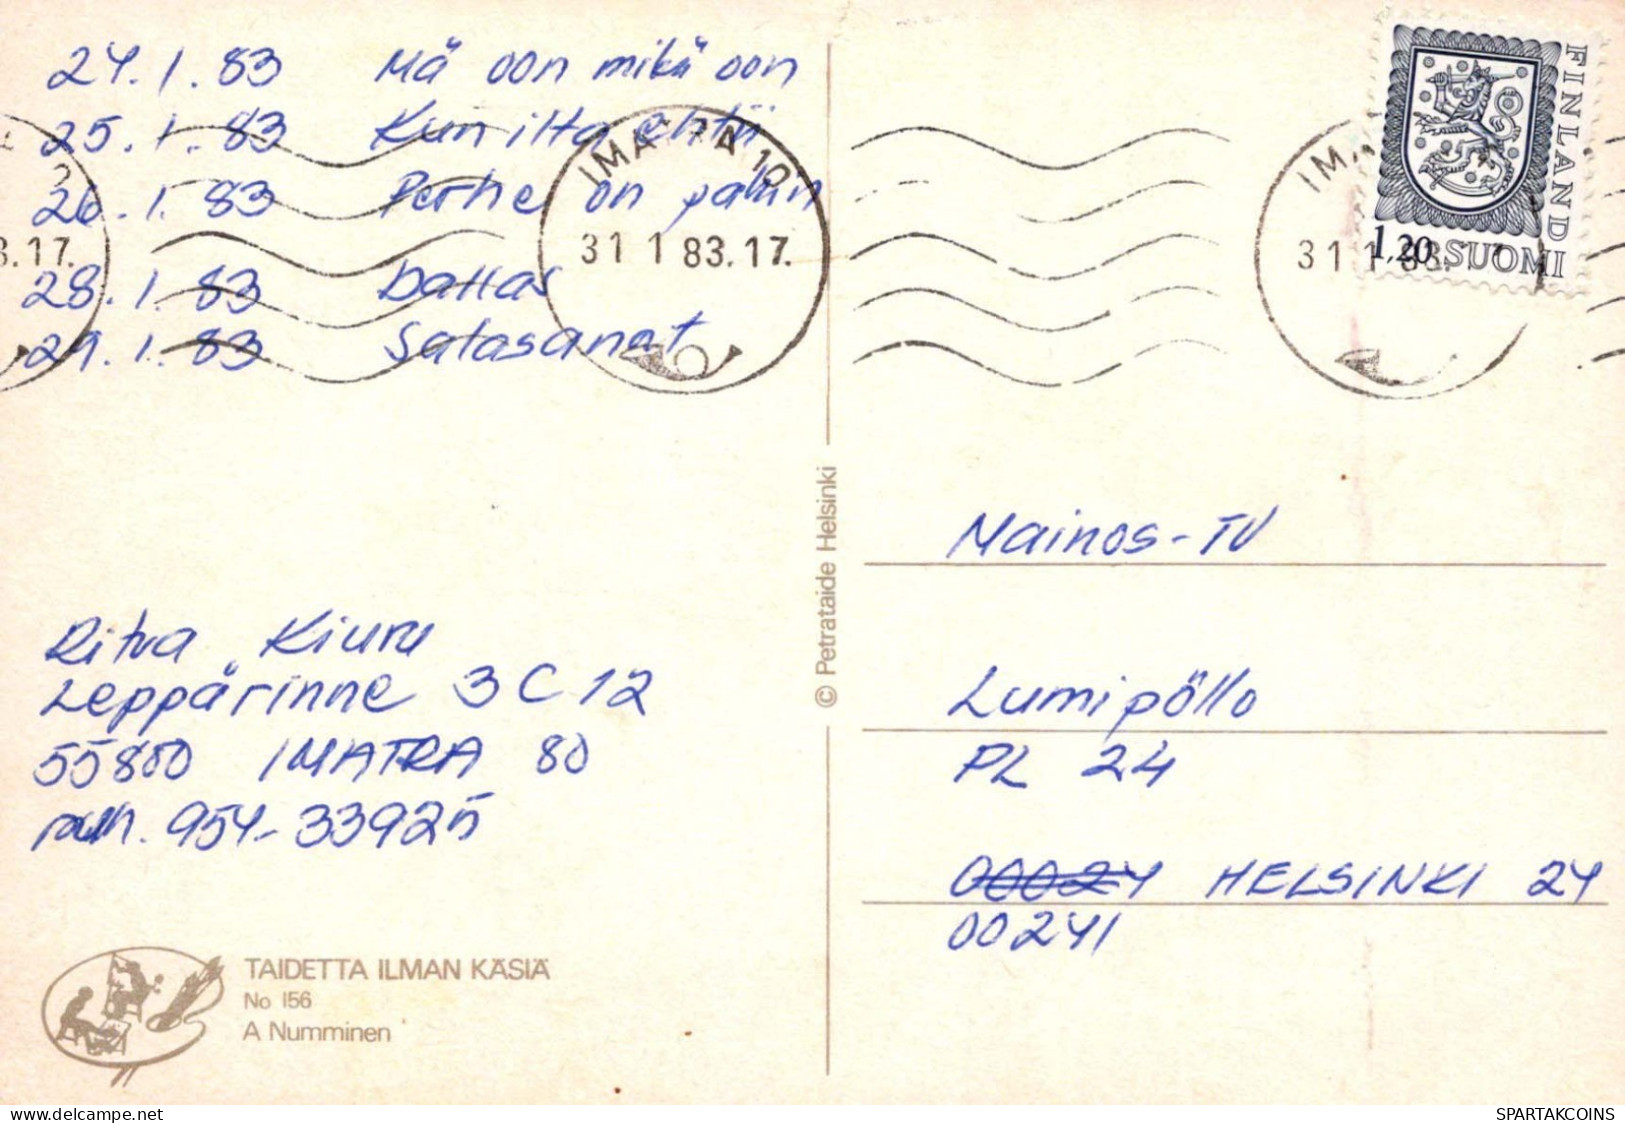 24.1.83 Mä oon mikä oon
25.1.83 Kun ilta ehtii
26.1.83 Perhe on pahin
28.1.83 Dallas
29.1.83 Satasanat
IMATRA 10
31 1 83.17.
3.17.
IM
31 1 83.17
FINLAND
1,20 SUOMI
© Petrataide Helsinki
Mainos-TV
Lumipöllö
PL 24
00024 HELSINKI 24
00241
Ritva Kiuru
Leppärinne 3 C 12
55800 IMATRA 80
puh. 954-33925
TAIDETTA ILMAN KÄSIÄ
No 156
A Numminen
delcampe.net
SPARTAKCOINS